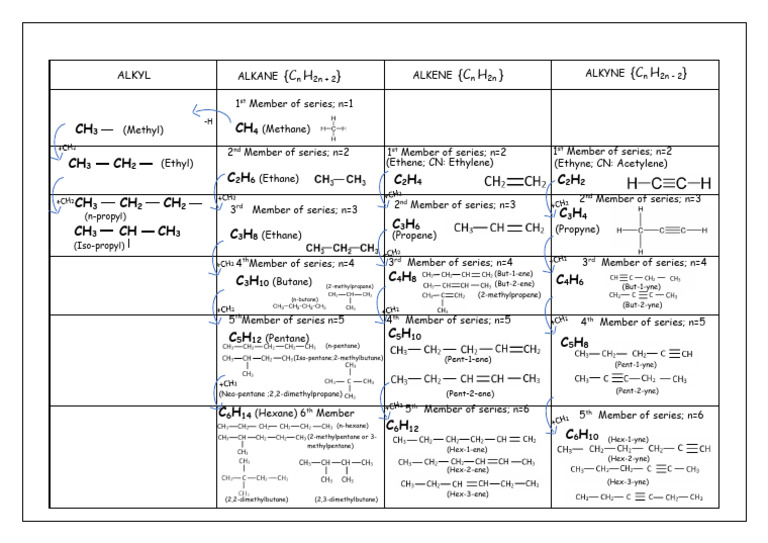 ALKYL
ALKANE {CnH2n + 2}
ALKENE {CnH2n}
ALKYNE {CnH2n - 2}
CH3 — (Methyl)
-H
1st Member of series; n=1
CH4 (Methane)
H
H—C—H
H
+CH2
CH3 — CH2 — (Ethyl)
2nd Member of series; n=2
C2H6 (Ethane) CH3—CH3
1st Member of series; n=2
(Ethene; CN: Ethylene)
C2H4 CH2=CH2
1st Member of series; n=2
(Ethyne, CN: Acetylene)
C2H2 H—C≡C—H
+CH2 CH3 — CH2 — CH2 —
(n-propyl)
CH3 — CH — CH3
(Iso-propyl) |
+CH2
3rd Member of series; n=3
C3H8 (Ethane)
CH3—CH2—CH3
+CH2
2nd Member of series; n=3
C3H6 CH3—CH=CH2
(Propene)
+CH2
2nd Member of series; n=3
C3H4
(Propyne)
H
H—C—C≡C—H
H
+CH2 4th Member of series; n=4
C3H10 (Butane) (2-methylpropene)
CH3—CH—CH3
CH3
(n-butane)
CH3—CH2—CH2—CH3
+CH2
3rd Member of series; n=4
C4H8 CH3—CH2—CH=CH2 (But-1-ene)
CH3—CH=CH—CH3 (But-2-ene)
CH3—C=CH2 (2-methylpropene)
CH3
+CH2
3rd Member of series; n=4
C4H6 CH≡C—CH2—CH3
(But-1-yne)
CH3—C≡C—CH3
(But-2-yne)
+CH2
5th Member of series n=5
C5H12 (Pentane)
CH3—CH2—CH2—CH2—CH3 (n-pentane)
CH3—CH—CH2—CH3 (Iso-pentane;2-methylbutane)
CH3
CH3
CH3—C—CH3
CH3
+CH2
(Neo-pentane ;2,2-dimethylpropane)
4th Member of series; n=5
C5H10
CH3—CH2—CH2—CH=CH2
(Pent-1-ene)
CH3—CH2—CH=CH—CH3
(Pent-2-ene)
+CH2
4th Member of series; n=5
C5H8
CH3—CH2—CH2—C≡CH
(Pent-1-yne)
CH3—C≡C—CH2—CH3
(Pent-2-yne)
C6H14 (Hexane) 6th Member
CH3—CH2—CH2—CH2—CH2—CH3 (n-hexane)
CH3—CH—CH2—CH2—CH3 (2-methylpentane or 3-
methylpentane)
CH3
CH3
CH3—C—CH2—CH3
CH3
(2,2-dimethylbutane)
CH3—CH—CH—CH3
CH3 CH3
(2,3-dimethylbutane)
+CH2 5th Member of series; n=6
C6H12
CH3—CH2—CH2—CH2—CH=CH2
(Hex-1-ene)
CH3—CH2—CH2—CH=CH—CH3
(Hex-2-ene)
CH3—CH2—CH=CH—CH2—CH3
(Hex-3-ene)
+CH2
5th Member of series; n=6
C6H10 (Hex-1-yne)
CH3—CH2—CH2—CH2—C≡CH
(Hex-2-yne)
CH3—CH2—CH2—C≡C—CH3
(Hex-3-yne)
CH3—CH2—C≡C—CH2—CH3